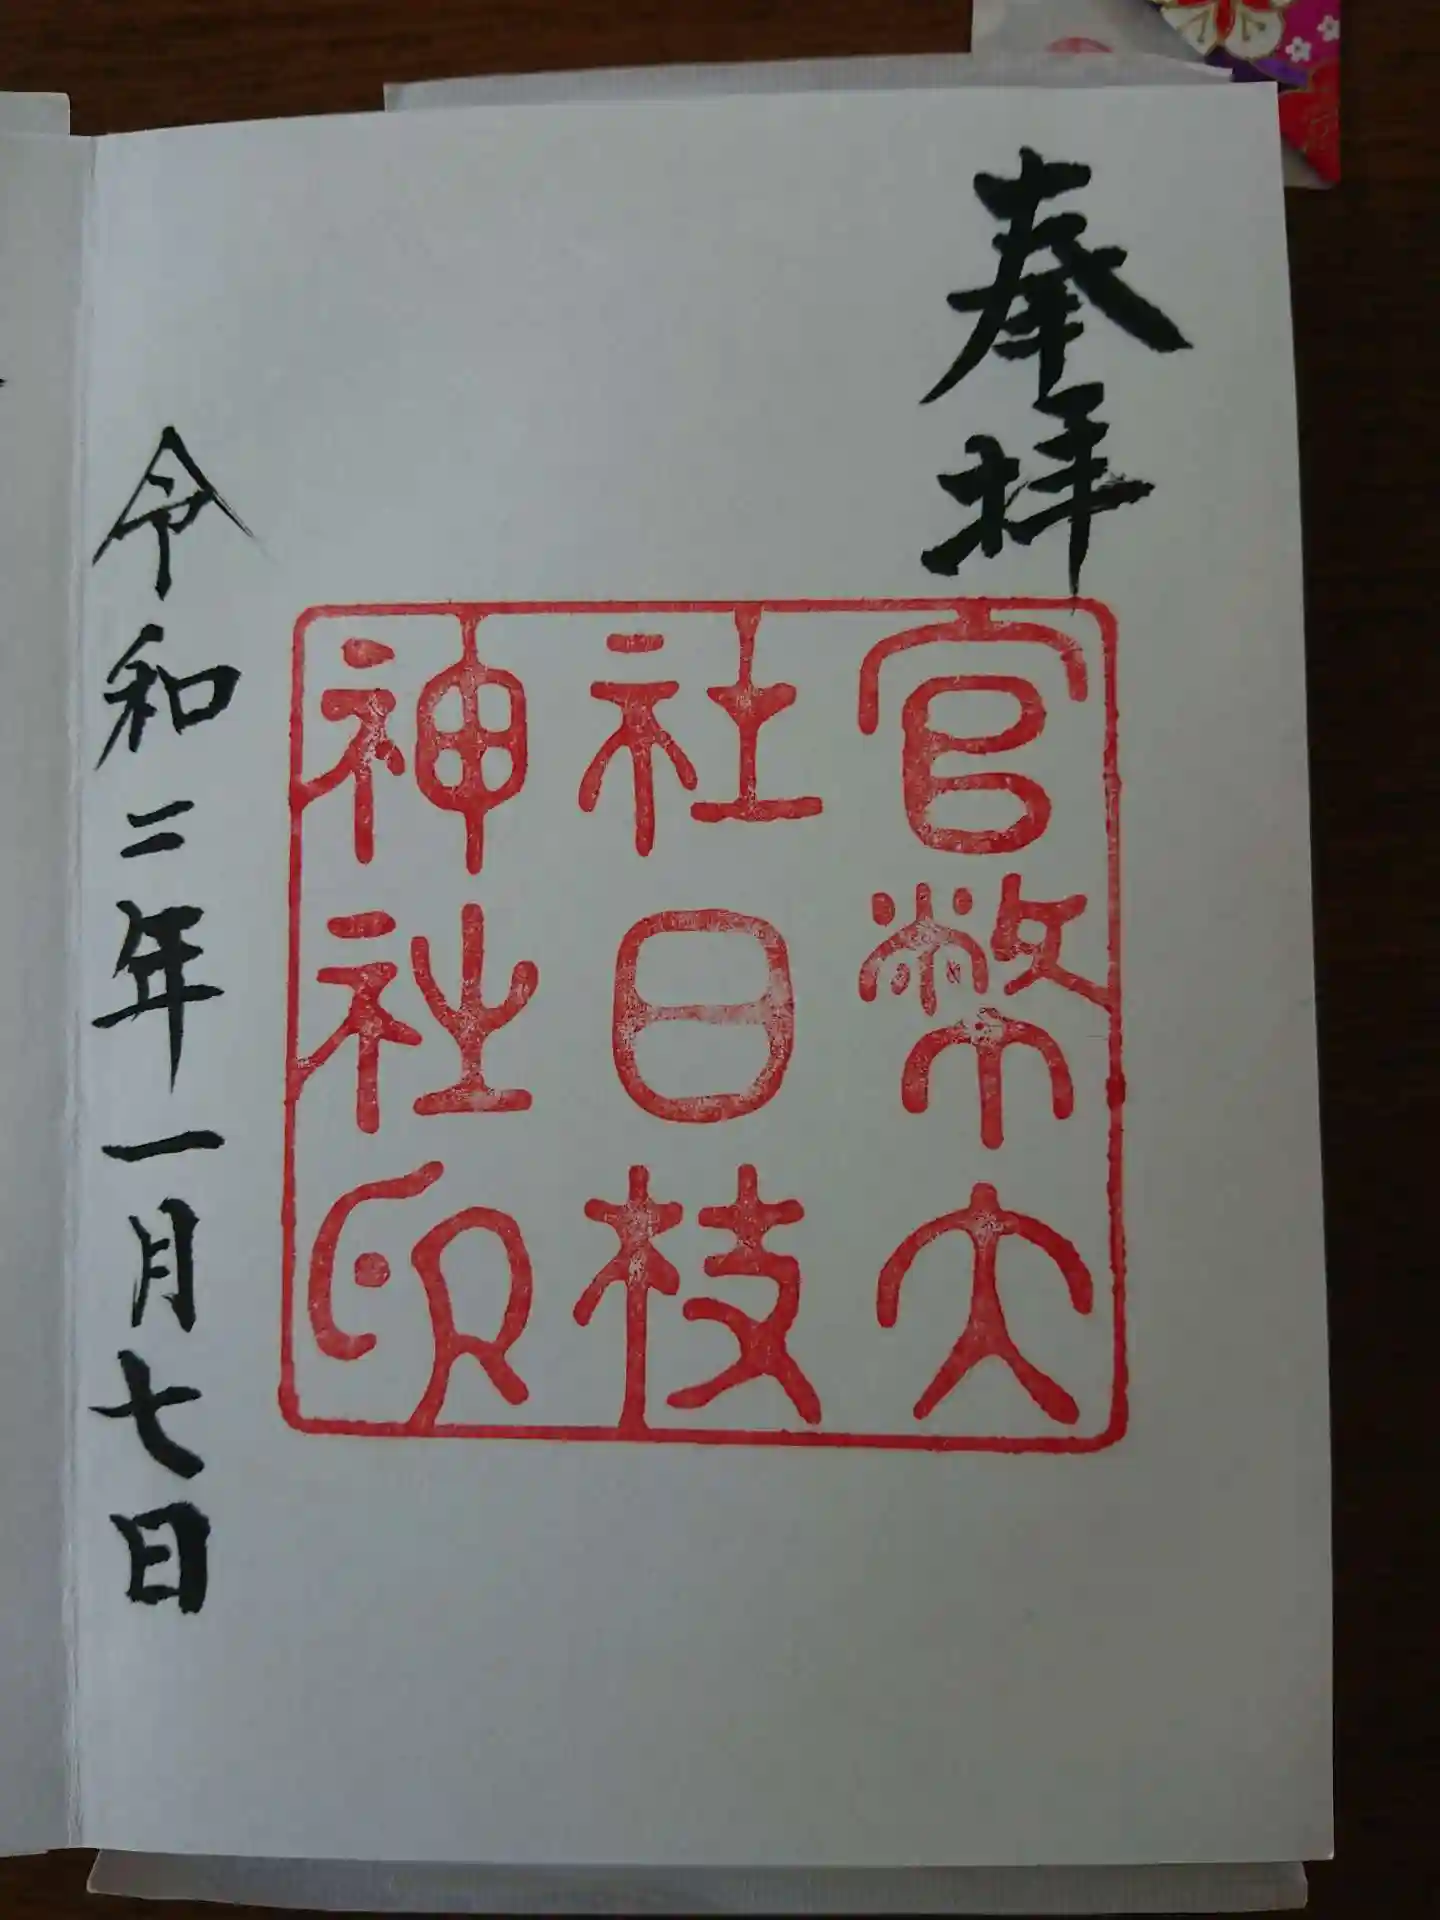 奉拝
官幣大
社日枝
神社印
令和二年一月七日